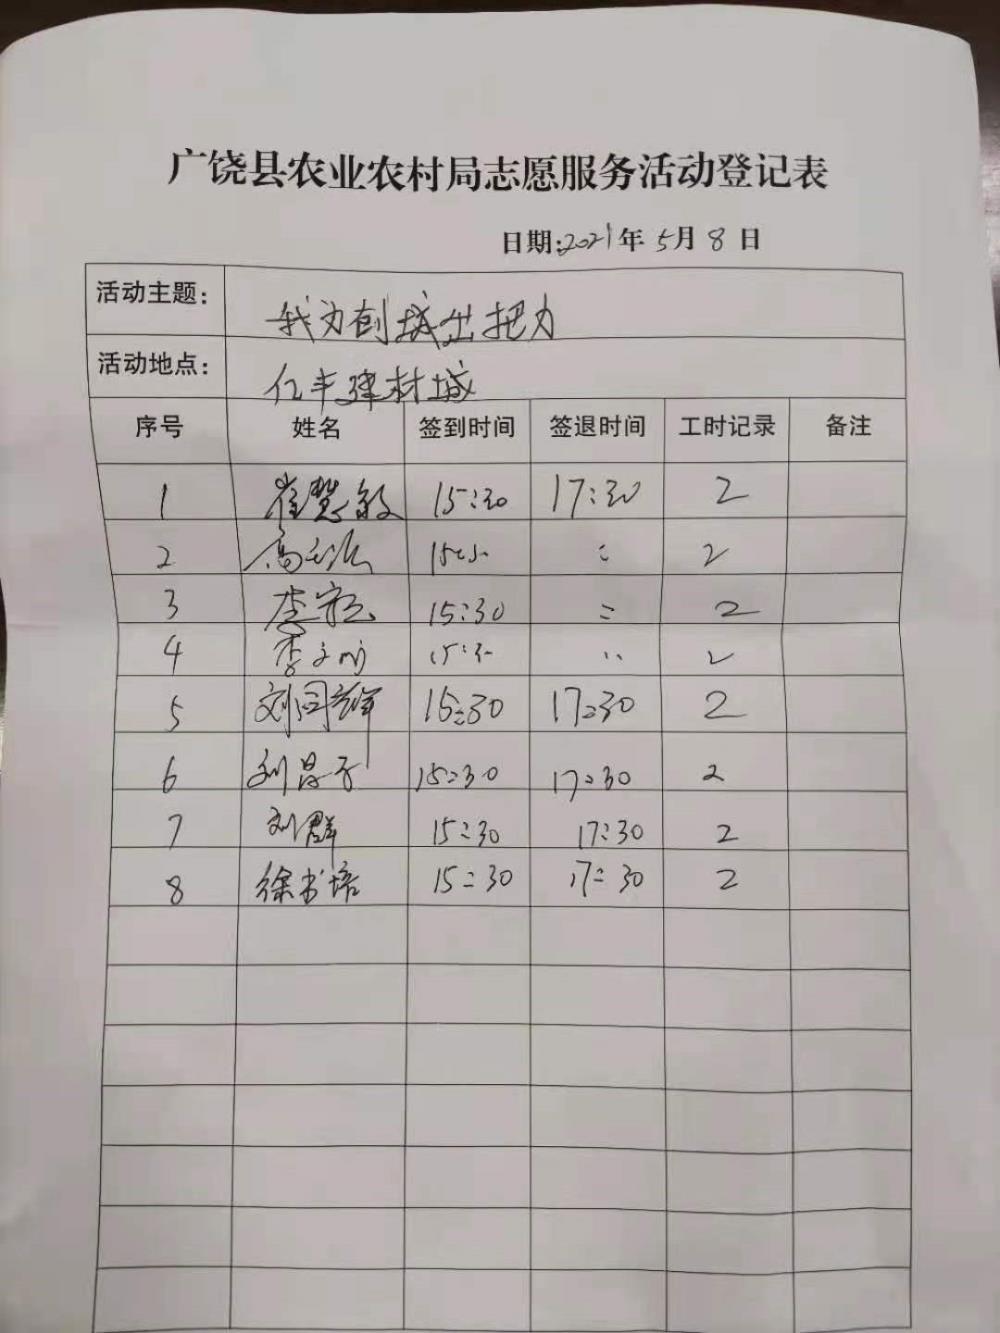 广饶县农业农村局志愿服务活动登记表
日期:2021年5月8日
活动主题: 我为创城出把力
活动地点: 亿丰建材城
序号 姓名 签到时间 签退时间 工时记录 备注
1 崔慧敏 15:30 17:30 2
2 15:30 : 2
3 李 15:30 : 2
4 李文明 15:30 : 2
5 刘同辉 15:30 17:30 2
6 刘昌子 15:30 17:30 2
7 刘群 15:30 17:30 2
8 徐书培 15:30 17:30 2